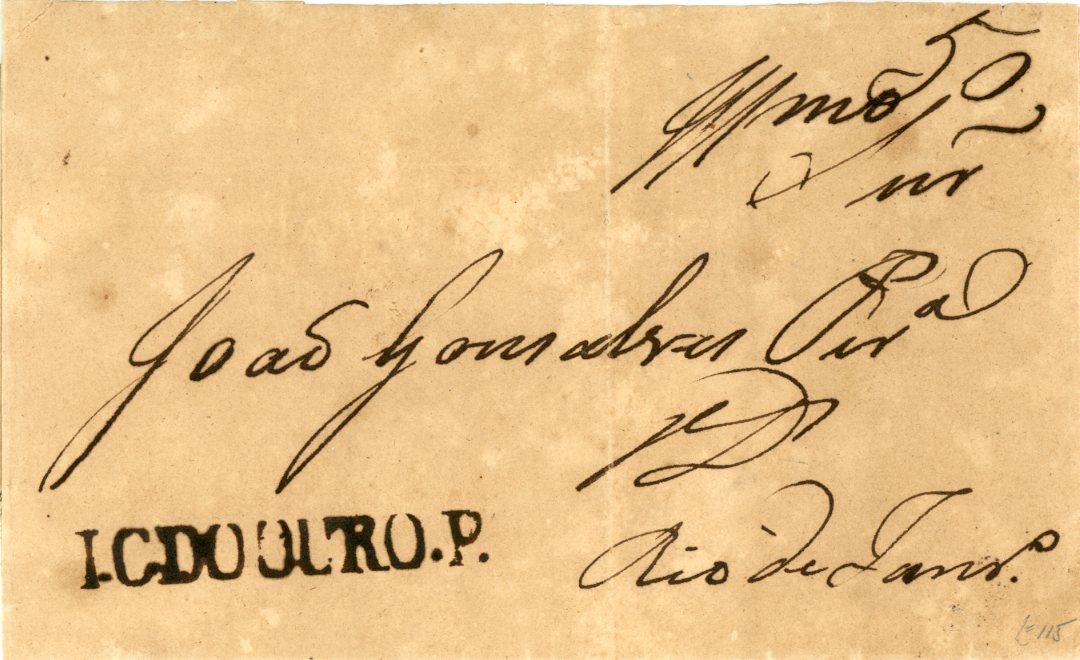 Illmo Snr
João Gonsalves Perª
Rio de Janrº.
I.C.DO OURO.P.
115